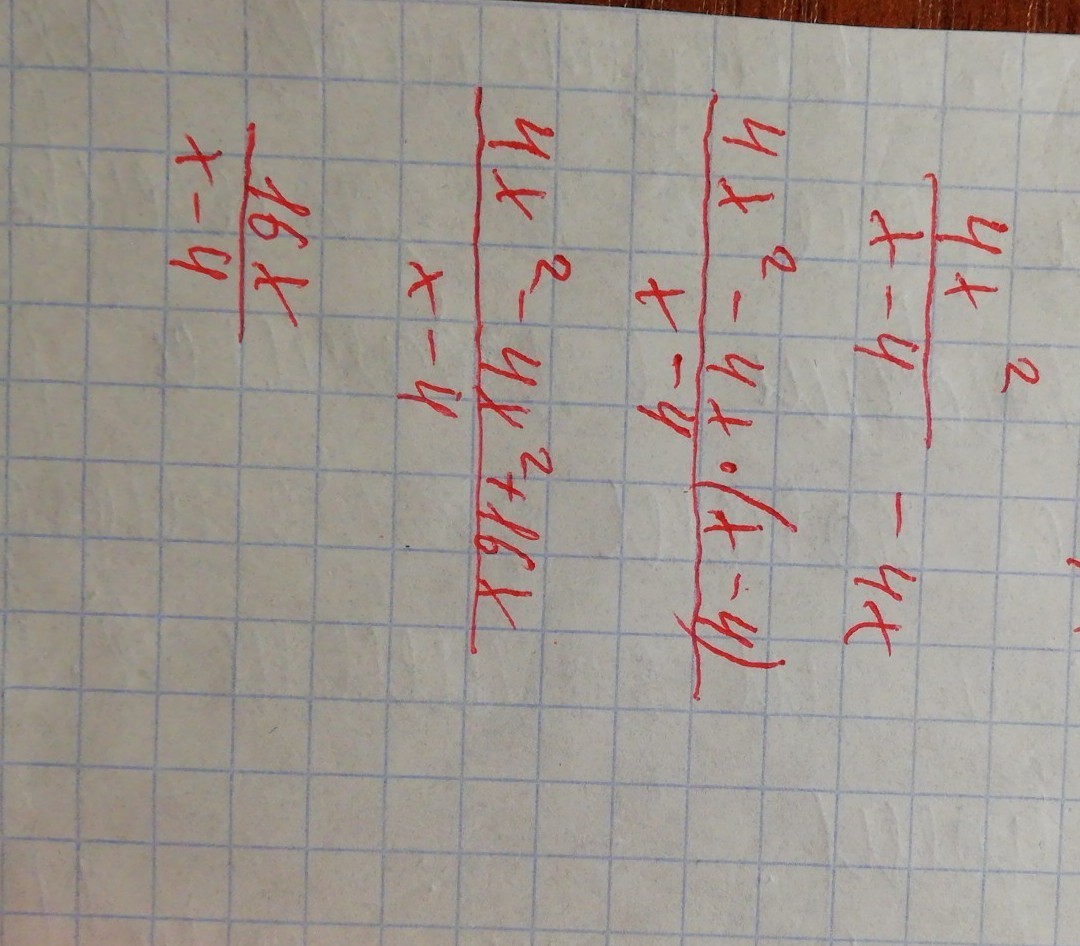 4x²/(x-4) - 4x
(4x² - 4x·(x-4))/(x-4)
(4x² - 4x² + 16x)/(x-4)
16x/(x-4)